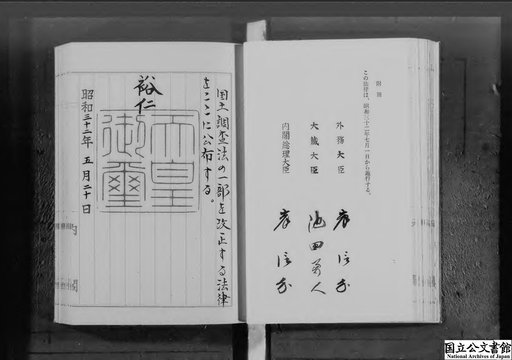 附則
この法律は、昭和三十二年七月一日から施行する。
外務大臣 岸信介
大蔵大臣 池田勇人
内閣総理大臣 岸信介
国土調査法の一部を改正する法律
をここに公布する。
裕仁
天皇
御璽
昭和三十二年五月二十日
国立公文書館
National Archives of Japan